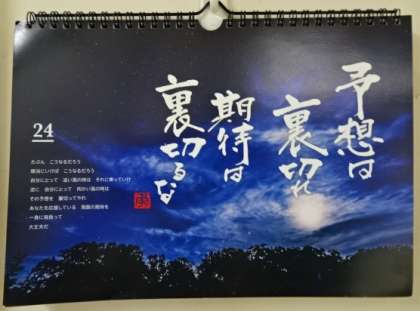 予想は
裏切れ
期待は
裏切るな
24
たぶん こうなるだろう
順当にいけば こうなるだろう
自分にとって 追い風の時は それに乗っていけ
逆に 自分にとって 向かい風の時は
その予想を 裏切ってやれ
あなたを応援している 周囲の期待を
一身に背負って
大丈夫だ